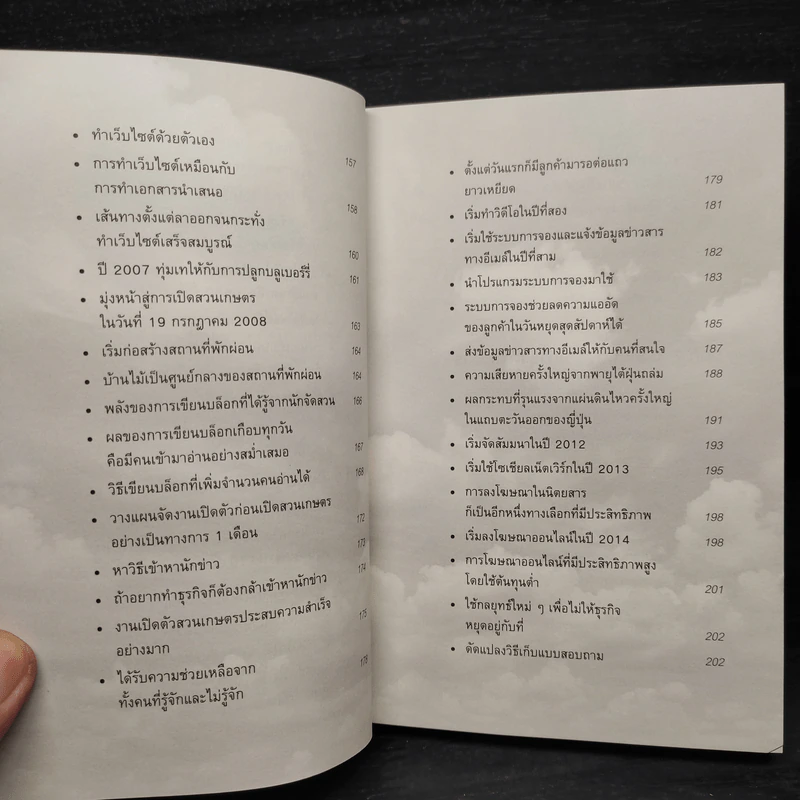 • ทำเว็บไซต์ด้วยตัวเอง 157
• การทำเว็บไซต์เหมือนกับ
การทำเอกสารนำเสนอ 158
• เส้นทางตั้งแต่ลาออกจนกระทั่ง
ทำเว็บไซต์เสร็จสมบูรณ์ 160
• ปี 2007 ทุ่มเทให้กับการปลูกบลูเบอร์รี่ 161
• มุ่งหน้าสู่การเปิดสวนเกษตร
ในวันที่ 19 กรกฎาคม 2008 163
• เริ่มก่อสร้างสถานที่พักผ่อน 164
• บ้านไม้เป็นศูนย์กลางของสถานที่พักผ่อน 164
• พลังของการเขียนบล็อกที่ได้รู้จากนักจัดสวน 166
• ผลของการเขียนบล็อกเกือบทุกวัน
คือมีคนเข้ามาอ่านอย่างสม่ำเสมอ 167
• วิธีเขียนบล็อกที่เพิ่มจำนวนคนอ่านได้ 168
• วางแผนจัดงานเปิดตัวก่อนเปิดสวนเกษตร
อย่างเป็นทางการ 1 เดือน 172
• หาวิธีเข้าหานักข่าว 173
• ถ้าอยากทำธุรกิจก็ต้องกล้าเข้าหานักข่าว 174
• งานเปิดตัวสวนเกษตรประสบความสำเร็จ
อย่างมาก 175
• ได้รับความช่วยเหลือจาก
ทั้งคนที่รู้จักและไม่รู้จัก 176
• ตั้งแต่วันแรกก็มีลูกค้ามารอต่อแถว
ยาวเหยียด 179
• เริ่มทำวิดีโอในปีที่สอง 181
• เริ่มใช้ระบบการจองและแจ้งข้อมูลข่าวสาร
ทางอีเมล์ในปีที่สาม 182
• นำโปรแกรมระบบการจองมาใช้ 183
• ระบบการจองช่วยลดความแออัด
ของลูกค้าในวันหยุดสุดสัปดาห์ได้ 185
• ส่งข้อมูลข่าวสารทางอีเมล์ให้กับคนที่สนใจ 187
• ความเสียหายครั้งใหญ่จากพายุไต้ฝุ่นถล่ม 188
• ผลกระทบที่รุนแรงจากแผ่นดินไหวครั้งใหญ่
ในแถบตะวันออกของญี่ปุ่น 191
• เริ่มจัดสัมมนาในปี 2012 193
• เริ่มใช้โซเชียลเน็ตเวิร์กในปี 2013 195
• การลงโฆษณาในนิตยสาร
ก็เป็นอีกหนึ่งทางเลือกที่มีประสิทธิภาพ 198
• เริ่มลงโฆษณาออนไลน์ในปี 2014 198
• การโฆษณาออนไลน์ที่มีประสิทธิภาพสูง
โดยใช้ต้นทุนต่ำ 201
• ใช้กลยุทธ์ใหม่ ๆ เพื่อไม่ให้ธุรกิจ
หยุดอยู่กับที่ 202
• ดัดแปลงวิธีเก็บแบบสอบถาม 202